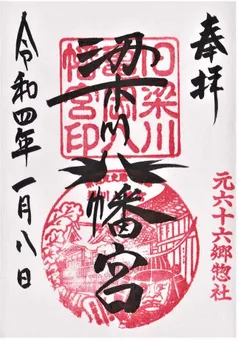 奉拝
元六十六郷惣社
梁川八幡宮
梁川
岡八
幡宮印
令和四年一月八日